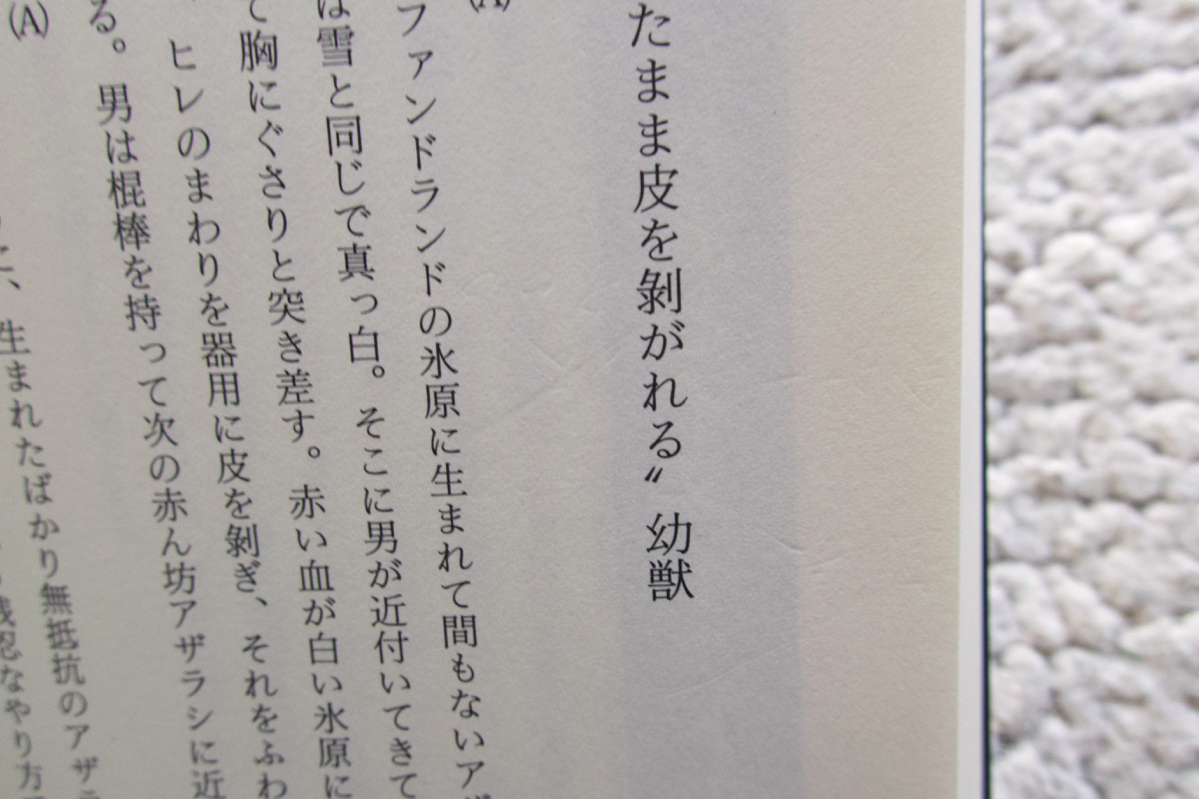 たまま皮を剝がれる〟幼獣
(A)
ファンドランドの氷原に生まれて間もないア
は雪と同じで真っ白。そこに男が近付いてきて
て胸にぐさりと突き差す。赤い血が白い氷原に
ヒレのまわりを器用に皮を剝ぎ、それをふわ
る。男は棍棒を持って次の赤ん坊アザラシに近
(A)
に、生まれたばかり無抵抗のアザラ
残忍なやり方